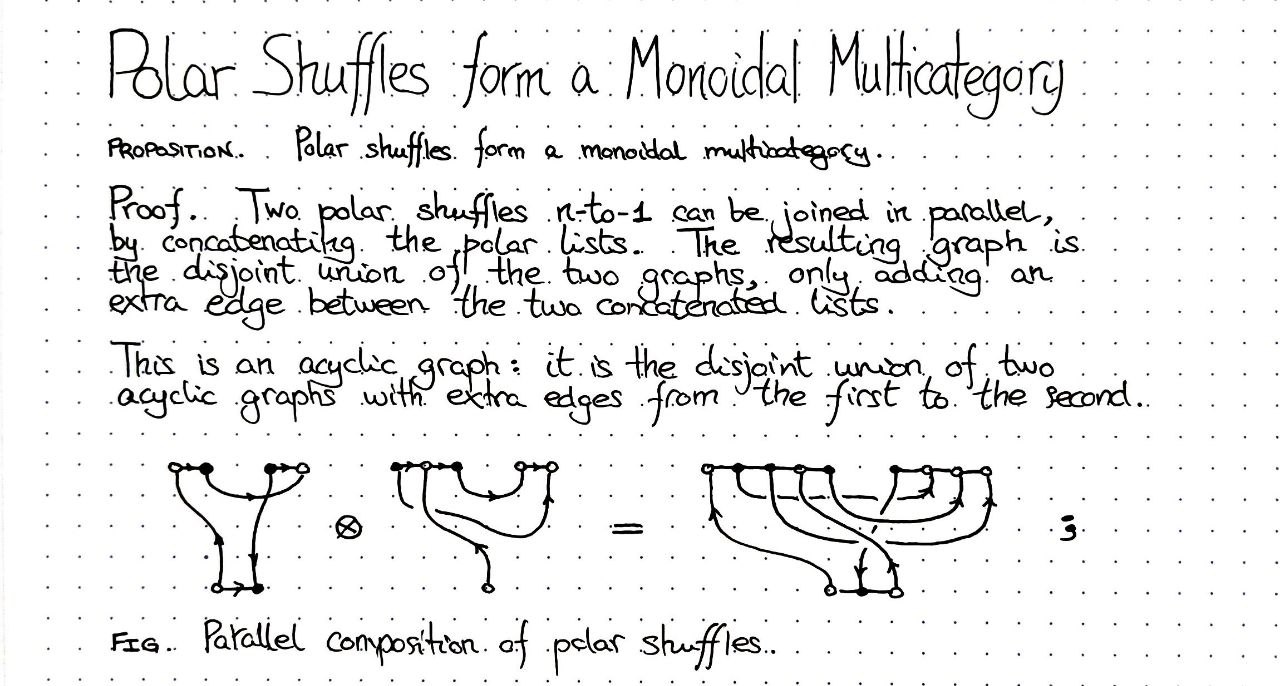 Polar Shuffles form a Monoidal Multicategory
PROPOSITION. Polar shuffles form a monoidal multicategory.
Proof. Two polar shuffles n-to-1 can be joined in parallel,
by concatenating the polar lists. The resulting graph is
the disjoint union of the two graphs, only adding an
extra edge between the two concatenated lists.
This is an acyclic graph: it is the disjoint union of two
acyclic graphs with extra edges from the first to the second.
⊗ = ;
FIG. Parallel composition of polar shuffles.